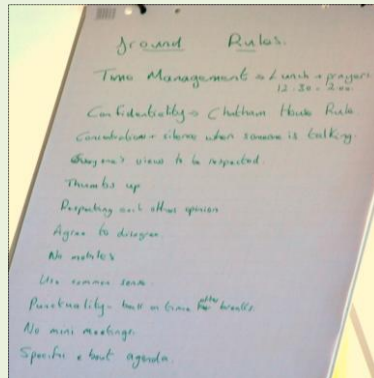 Ground Rules.
Time Management → Lunch + prayers
12.30 - 2.00
Confidentiality → Chatham House Rule
Concentration + silence when someone is talking.
Everyone's views to be respected.
Thumbs up
Respecting each others opinion
Agree to disagree.
No mobiles
Use common sense.
Punctuality - back on time after breaks.
No mini meetings.
Specific about agenda.